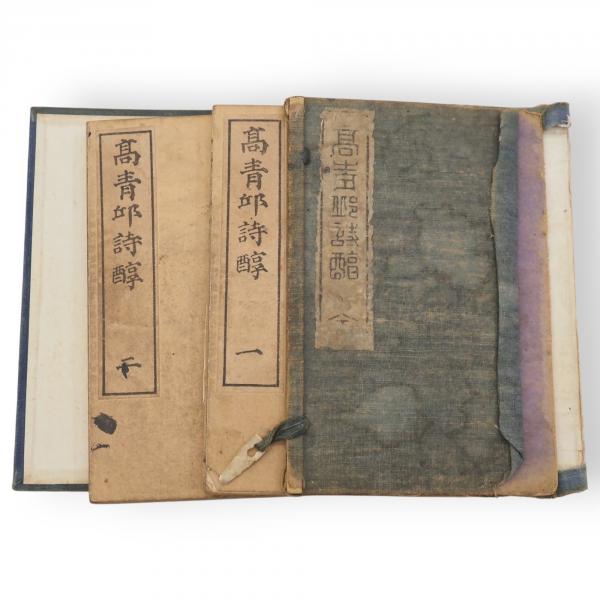 髙青邱詩醇
髙青邱詩醇 一
髙青邱詩醇